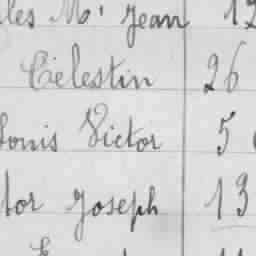 les M. Jean 12
Célestin 26
Louis Victor 5
tor Joseph 13